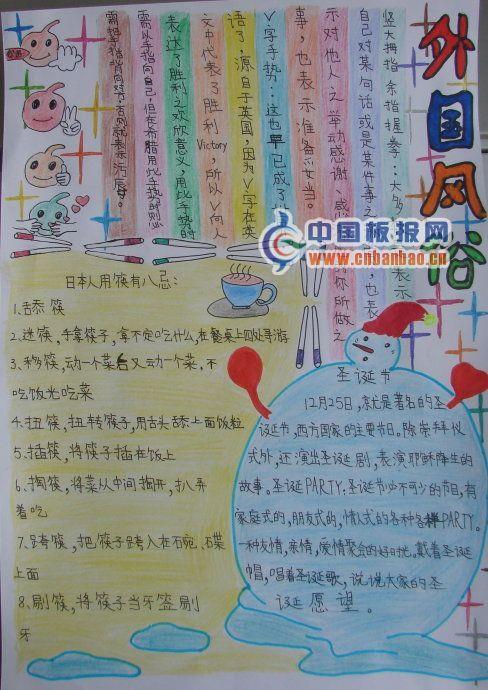 外国风俗
竖大拇指,余指握拳:大多
自己对某句话或是某件事之
示对他人之举动感谢、感
事,也表示准备妥当。
V字手势:这也早已成了
语了,源自于英国,因为V字在英
文中代表了胜利Victory,所以V向人
表达了胜利之欢欣意义,用此手势时
需以手指背向自己,但在希腊用此手势时则
中国板报网
www.cnbanbao.cn
日本人用筷有八忌:
1、舔筷
2、迷筷,手拿筷子,拿不定吃什么,在餐桌上四处寻游
3、移筷,动一个菜后又动一个菜,不
吃饭光吃菜
4、扭筷,扭转筷子,用舌头舔上面饭粒
5、插筷,将筷子插在饭上
6、掏筷,将菜从中间掏开,扒弄
着吃
7、跨筷,把筷子跨入在碗、碟
上面
8、剔筷,将筷子当牙签剔
牙
圣诞节
12月25日,就是著名的圣
诞节,西方国家的主要节日。除崇拜仪
式外,还演出圣诞剧,表演耶稣降生的
故事。圣诞PARTY.圣诞节必不可少的节目,有
家庭式的,朋友式的,情人式的各种各样PARTY。
一种友情,亲情,爱情聚会的好时光。戴着圣诞
帽,唱着圣诞歌,说说大家的圣
诞愿望。